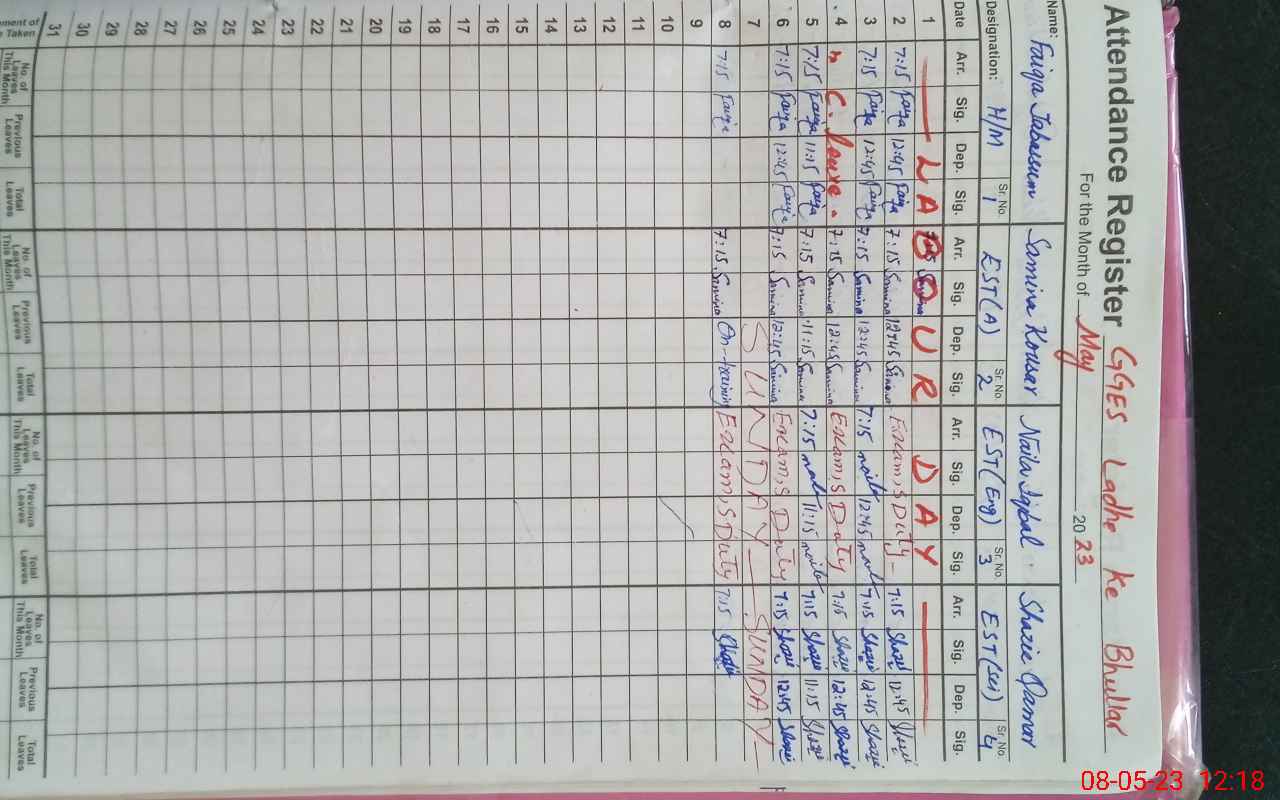 Attendance Register GGES Ladhe Ke Bhullar
For the Month of May 2023
Name: Faiqa Tabassum Samina Kousar Naila Iqbal Shazie Qamar
Designation: H/M Sr. No. 1 EST(A) Sr. No. 2 EST(Eng) Sr. No. 3 EST(Sci) Sr. No. 4
Date Arr. Sig. Dep. Sig. Arr. Sig. Dep. Sig. Arr. Sig. Dep. Sig. Arr. Sig. Dep. Sig.
1 LABOUR DAY
2 7:15 Faiqa 12:45 Faiqa 7:15 Samina 12:45 Samina Exams Duty 7:15 Shazie 12:45 Shazie
3 7:15 Faiqa 12:45 Faiqa 7:15 Samina 12:45 Samina 7:15 naila 12:45 naila 7:15 Shazie 12:45 Shazie
4 C. leave. 7:15 Samina 12:45 Samina Exams Duty 7:15 Shazie 12:45 Shazie
5 7:15 Faiqa 11:15 Faiqa 7:15 Samina 11:15 Samina 7:15 naila 11:15 naila 7:15 Shazie 11:15 Shazie
6 7:15 Faiqa 12:45 Faiqa 7:15 Samina 12:45 Samina Exams Duty 7:15 Shazie 12:45 Shazie
7 SUNDAY SUNDAY
8 7:15 Faiqa 7:15 Samina On-training Exams Duty 7:15 Shazie
9
10
11
12
13
14
15
16
17
18
19
20
21
22
23
24
25
26
27
28
29
30
31
No. of Leaves This Month Previous Leaves Total Leaves No. of Leaves This Month Previous Leaves Total Leaves No. of Leaves This Month Previous Leaves Total Leaves No. of Leaves This Month Previous Leaves Total Leaves
08-05-23 12:18